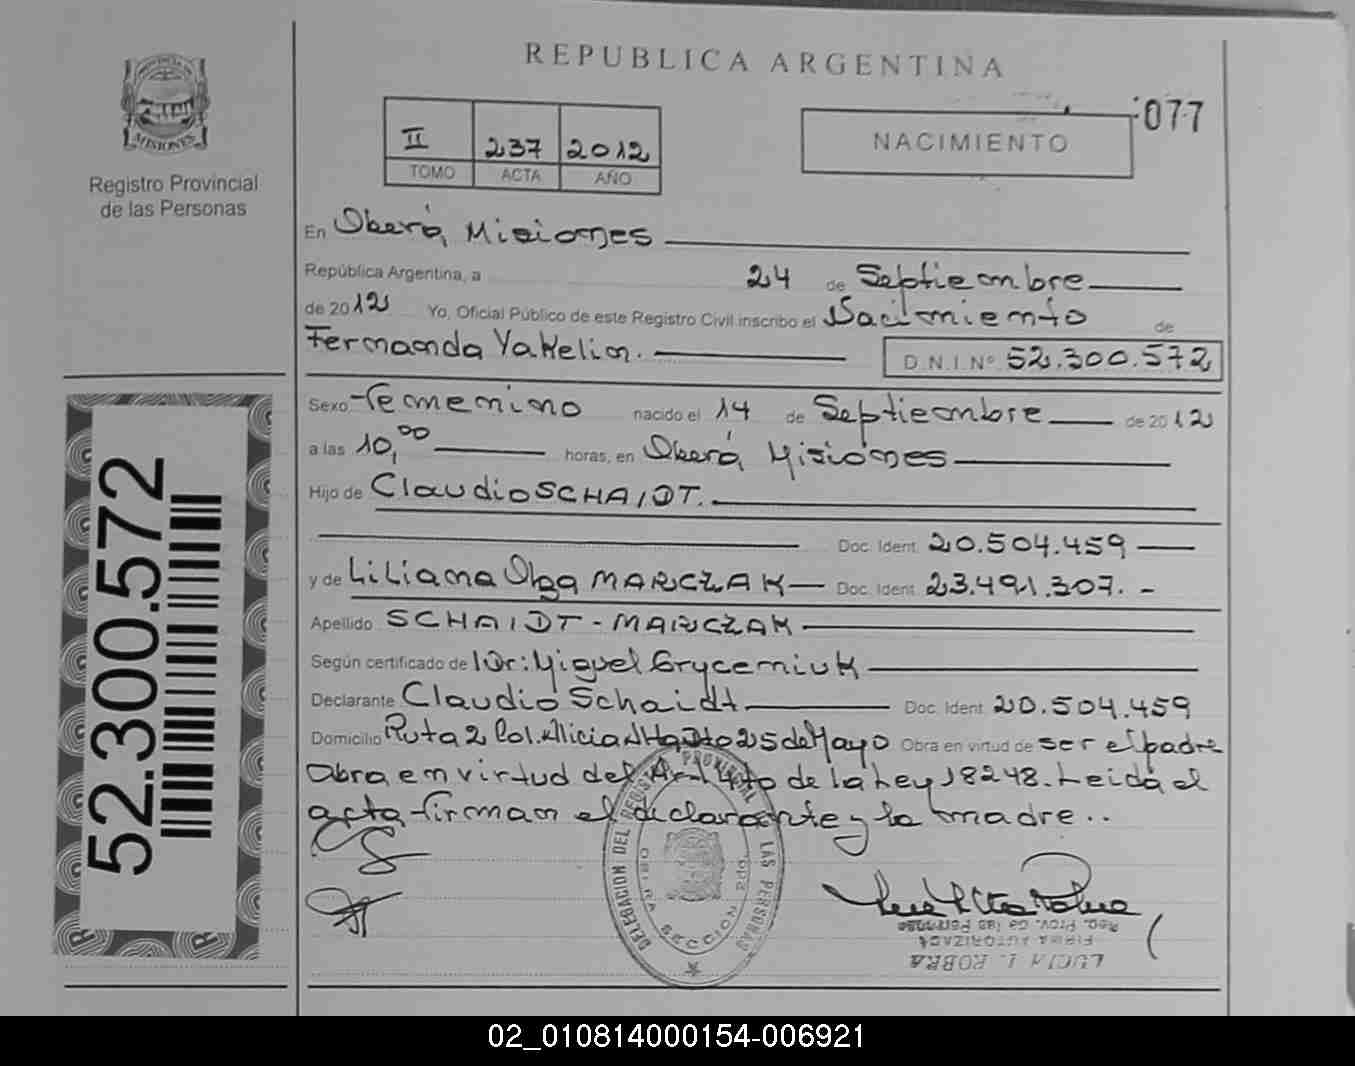 REPUBLICA ARGENTINA
PROVINCIA DE
MISIONES
Registro Provincial
de las Personas
II 237 2012
TOMO ACTA AÑO
NACIMIENTO
077
En Oberá, Misiones
República Argentina, a 24 de Septiembre
de 2012 Yo, Oficial Público de este Registro Civil inscribo el Nacimiento de
Fernanda Yakelin. D.N.I.Nº 52.300.572
Sexo Femenino nacido el 14 de Septiembre de 2012
a las 10,00 horas, en Oberá, Misiones
Hijo de Claudio SCHAIDT.
Doc. Ident. 20.504.459
y de Liliana Olga MARCZAK Doc. Ident. 23.491.307.-
Apellido SCHAIDT - MARCZAK
Según certificado de Dr: Miguel Gryceniuk
Declarante Claudio Schaidt Doc. Ident. 20.504.459
Domicilio Ruta 2 Col. Alicia Alta Dto 25 de Mayo Obra en virtud de ser el padre
Obra en virtud del Art 4to de la Ley 18248. Leida el
acta firman el declarante y la madre..
DELEGACION DEL REGISTRO PROVINCIAL LAS PERSONAS
SECCION 2da
Reg. Prov. de las Personas
FIRMA AUTORIZADA
LUCIA I. ROBRA
52.300.572
02_010814000154-006921